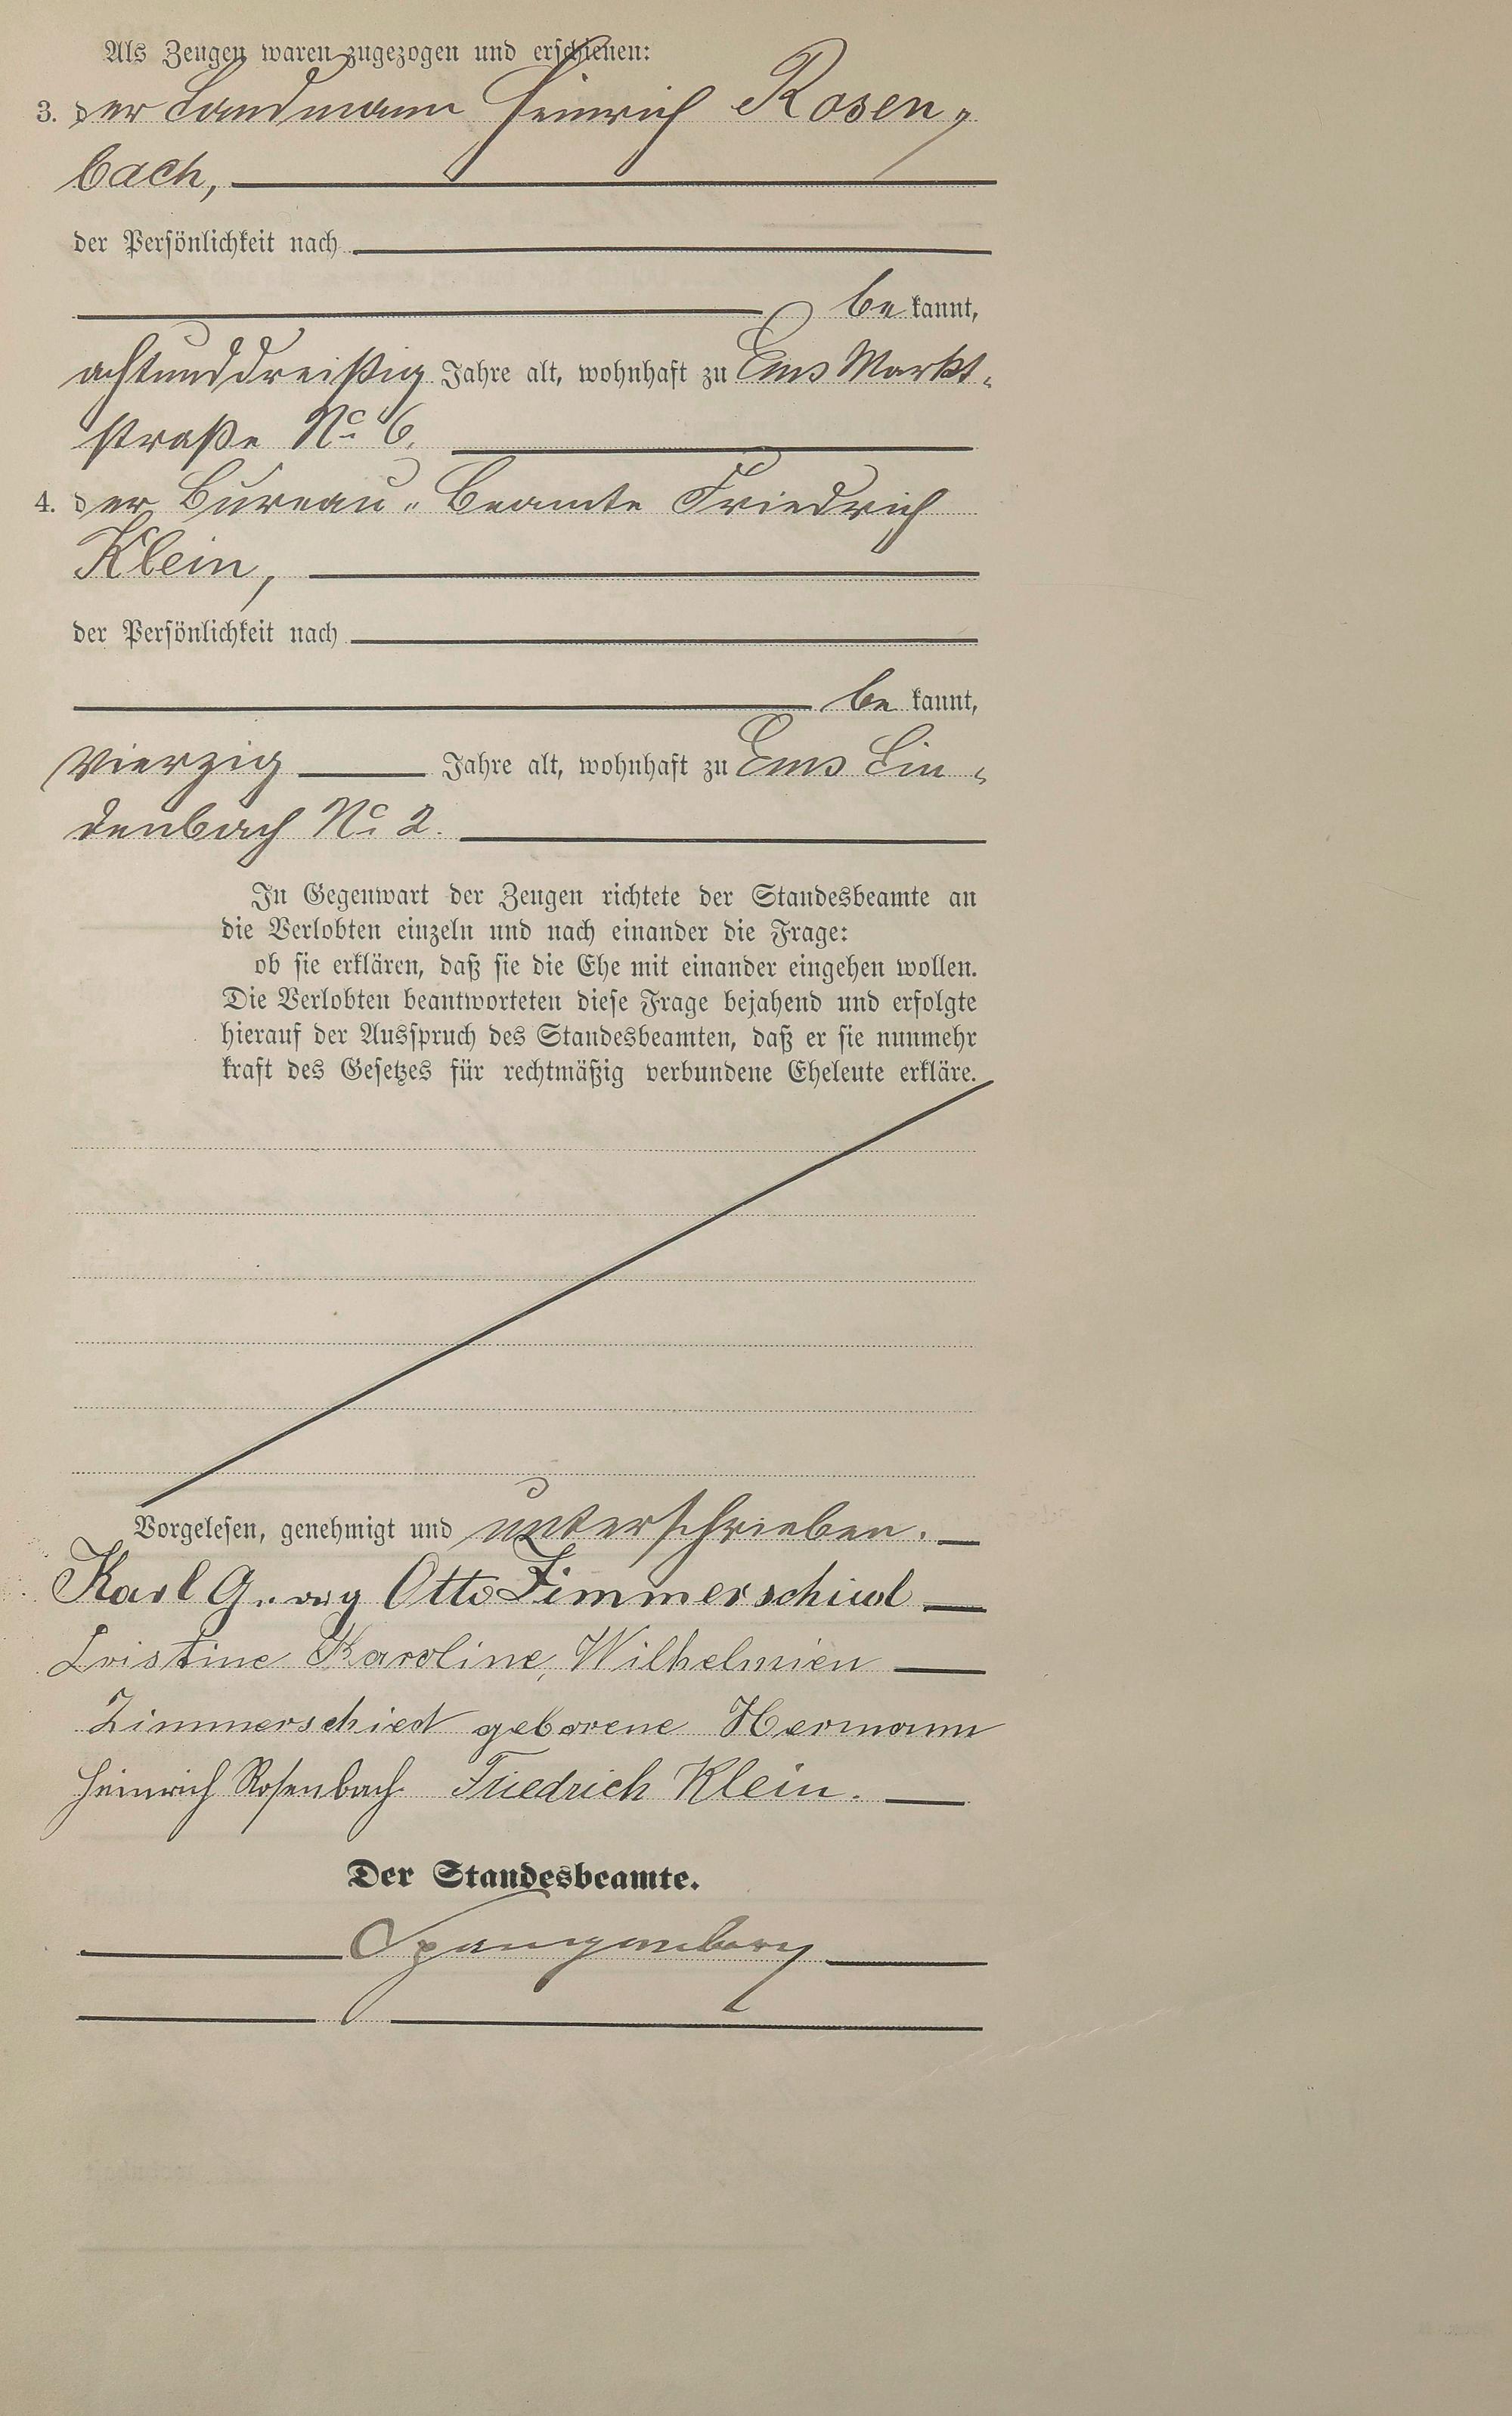 Als Zeugen waren zugezogen und erschienen:
3. der Landmann Heinrich Rosen-
bach,
der Persönlichkeit nach
be kannt,
achtunddreißig Jahre alt, wohnhaft zu Ems Markt-
straße No 6.
4. der Bureau-Beamte Friedrich
Klein,
der Persönlichkeit nach
be kannt,
vierzig Jahre alt, wohnhaft zu Ems Lin-
denbach No 2.
In Gegenwart der Zeugen richtete der Standesbeamte an
die Verlobten einzeln und nach einander die Frage:
ob sie erklären, daß sie die Ehe mit einander eingehen wollen.
Die Verlobten beantworteten diese Frage bejahend und erfolgte
hierauf der Ausspruch des Standesbeamten, daß er sie nunmehr
kraft des Gesetzes für rechtmäßig verbundene Eheleute erkläre.
Vorgelesen, genehmigt und unterschrieben.
Karl Georg Otto Zimmerschied
Karoline, Wilhelmien
Zimmerschied geborene Hermann
Heinrich Rosenbach Friedrich Klein.
Der Standesbeamte.
Spangenberg